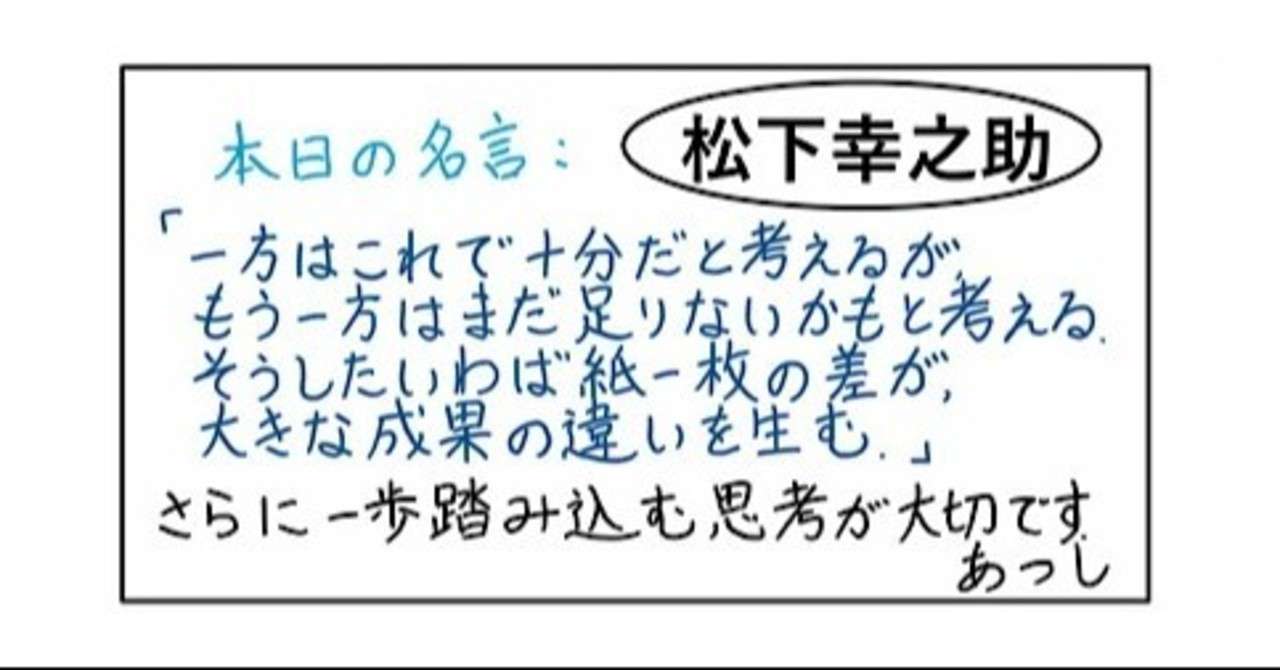 本日の名言: 松下幸之助
「一方はこれで十分だと考えるが,
もう一方はまだ足りないかもと考える.
そうしたいわば紙一枚の差が,
大きな成果の違いを生む.」
さらに一歩踏み込む思考が大切です.
あっし